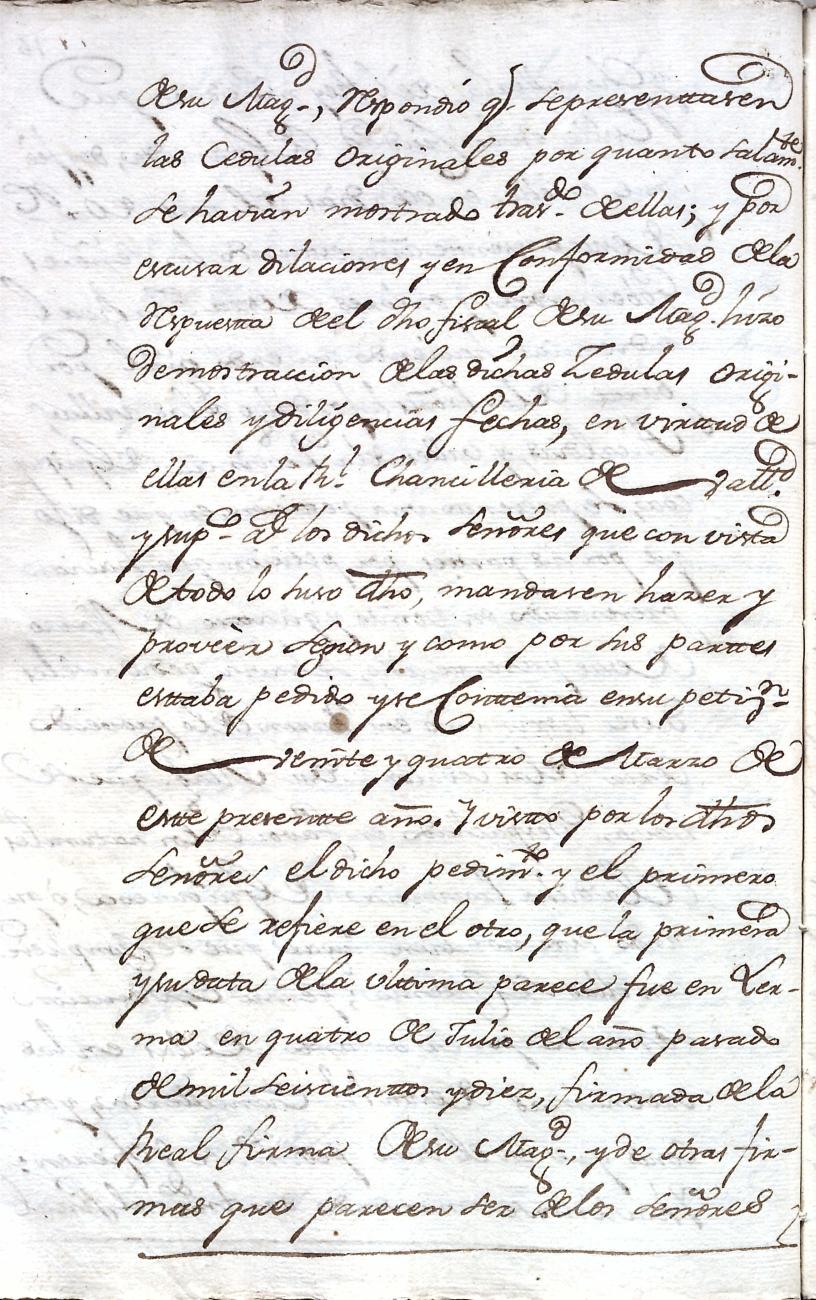 de su Mag.d, Respondió q.e se presenttasen
las Cedulas originales por quanto solam.te
se havian mostrado tras.do de ellas; y por
escusar dilaciones y en Conformidad de la
Respuesta de el dho fiscal de su Mag.d hizo
demostraccion de las dichas Zedulas origi-
nales y diligencias fechas, en virttud de
ellas en la R.l Chancilleria de Vall.d
y sup.co a los dichos Señores que con vista
de todo lo suso dho, mandasen hazer y
proveèr segun y como por sus parttes
esttaba pedido y se Conttenia en su petiz.n
de veinte y quatro de Marzo de
estte presentte año. Y vistto por los dhos
Señores el dicho pedim.to y el primero
que se refiere en el otro, que la primera
y su data de la ultima parece fue en Ler-
ma en quatro de Julio del año pasado
de mil seiscienttos y diez, firmada de la
Real firma de su Mag.d, y de otras fir-
mas que parecen ser de los señores